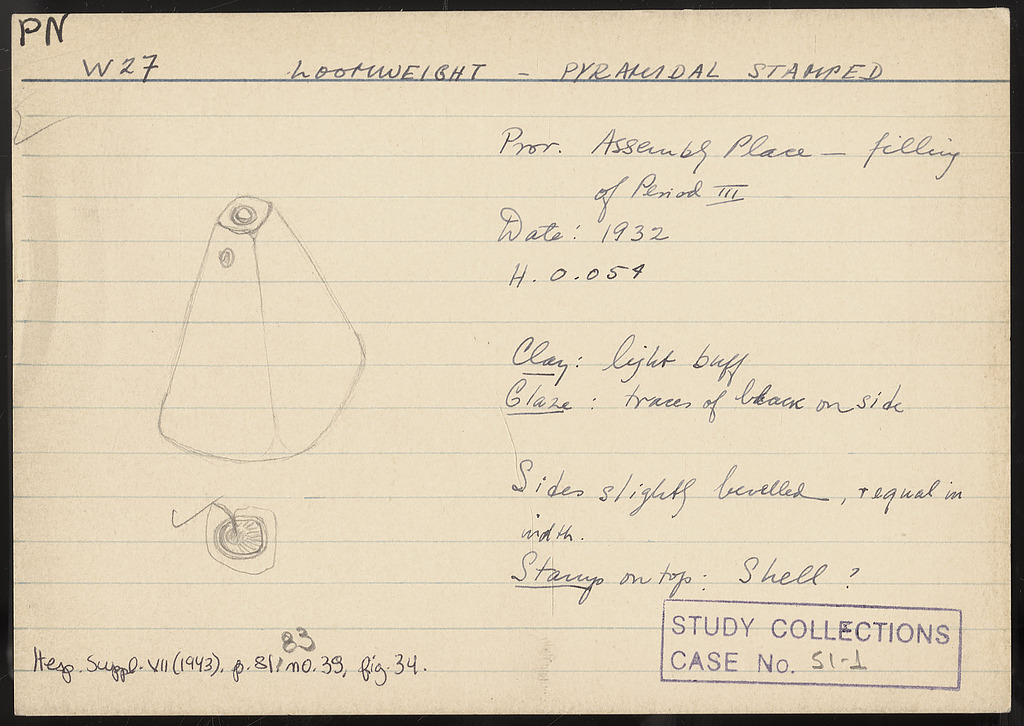 PN
W27 LOOMWEIGHT - PYRAMIDAL STAMPED
Prov. Assembly Place — filling
of Period III
Date: 1932
H. 0.054
Clay: light buff
Glaze: traces of black on side
Sides slightly bevelled, + equal in
width.
Stamp on top: Shell ?
STUDY COLLECTIONS
CASE No. SI-1
83
Hesp. Suppl. VII (1943), p. 81, no. 39, fig. 34.